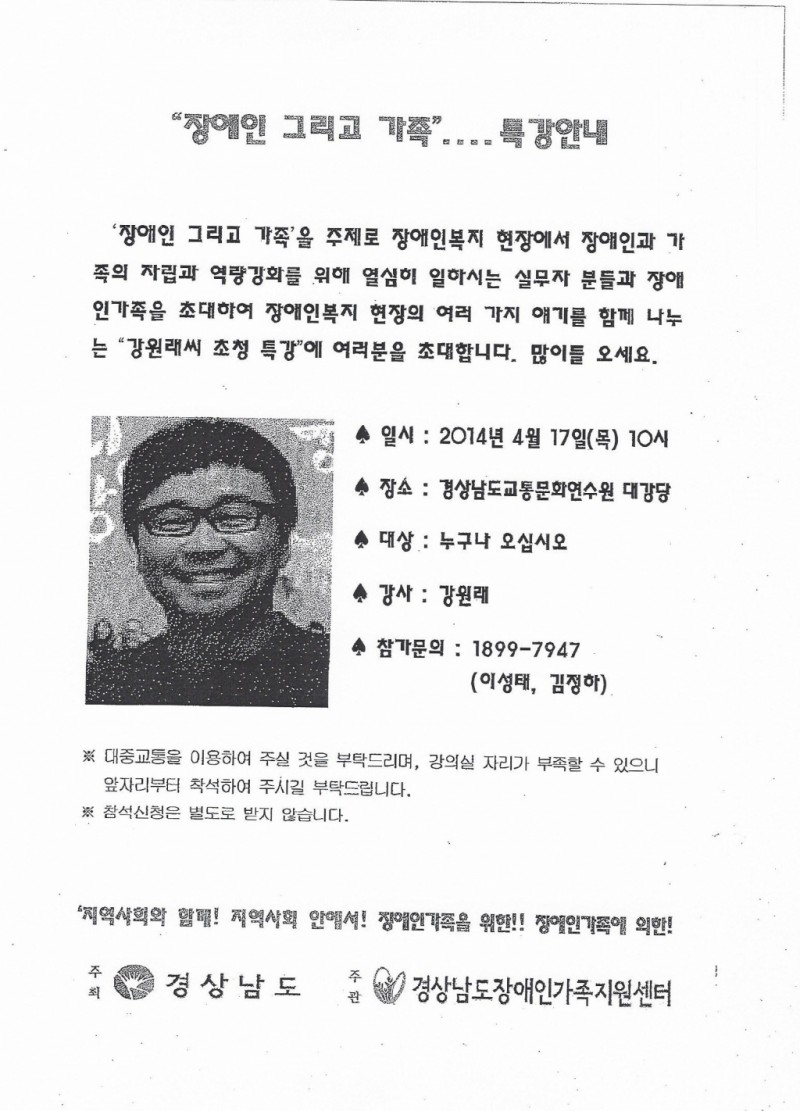 “장애인 그리고 가족”.... 특강안내
‘장애인 그리고 가족’을 주제로 장애인복지 현장에서 장애인과 가
족의 자립과 역량강화를 위해 열심히 일하시는 실무자 분들과 장애
인가족을 초대하여 장애인복지 현장의 여러 가지 얘기를 함께 나누
는 “강원래씨 초청 특강”에 여러분을 초대합니다. 많이들 오세요.
♠ 일시 : 2014년 4월 17일(목) 10시
♠ 장소 : 경상남도교통문화연수원 대강당
♠ 대상 : 누구나 오십시오
♠ 강사 : 강원래
♠ 참가문의 : 1899-7947
(이성태, 김정하)
※ 대중교통을 이용하여 주실 것을 부탁드리며, 강의실 자리가 부족할 수 있으니
앞자리부터 착석하여 주시길 부탁드립니다.
※ 참석신청은 별도로 받지 않습니다.
‘지역사회와 함께! 지역사회 안에서! 장애인가족을 위한!! 장애인가족에 의한!
주최 경상남도 주관 경상남도장애인가족지원센터